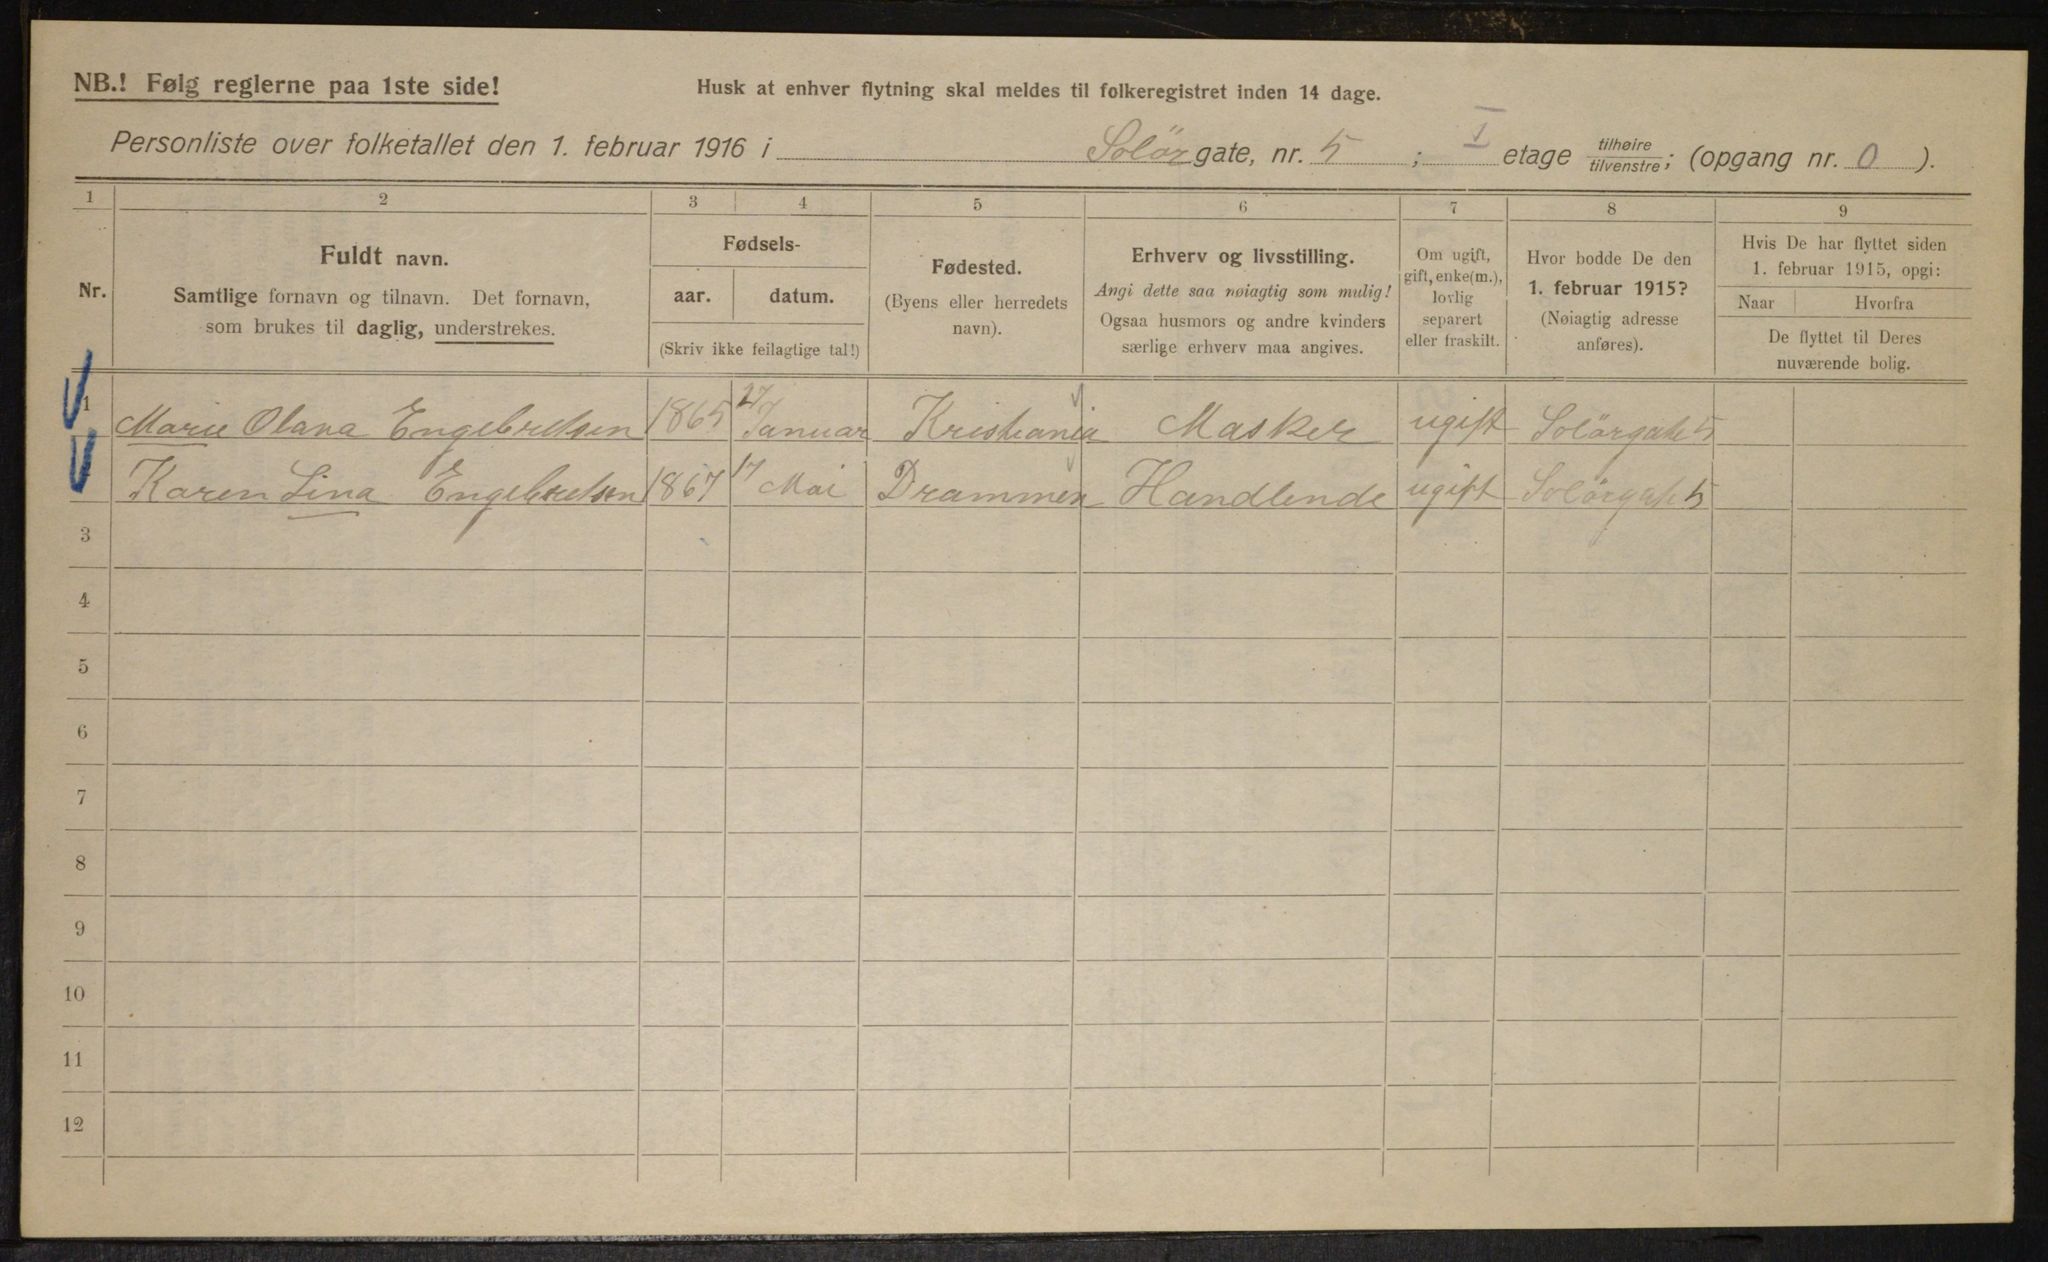 NB.! Følg reglerne paa 1ste side!
Husk at enhver flytning skal meldes til folkeregistret inden 14 dage.
Personliste over folketallet den 1. februar 1916 i Solör gate, nr. 5 ; I etage tilhøire/tilvenstre; (opgang nr. 0 ).
1 2 3 4 5 6 7 8 9
Nr.
Fuldt navn.
Samtlige fornavn og tilnavn. Det fornavn,
som brukes til daglig, understrekes.
Fødsels-
aar. datum.
(Skriv ikke feilagtige tal!)
Fødested.
(Byens eller herredets
navn).
Erhverv og livsstilling.
Angi dette saa nøiagtig som mulig!
Ogsaa husmors og andre kvinders
særlige erhverv maa angives.
Om ugift,
gift, enke(m.),
lovlig
separert
eller fraskilt.
Hvor bodde De den
1. februar 1915?
(Nøiagtig adresse
anføres).
Hvis De har flyttet siden
1. februar 1915, opgi:
Naar Hvorfra
De flyttet til Deres
nuværende bolig.
1 Marie Olava Engebretsen 1865 27 Januar Kristiania Masker ugift Solörgate 5
Karen Lina Engebretsen 1867 17 Mai Drammen Handlende ugift Solörgate 5
3
4
5
6
7
8
9
10
11
12